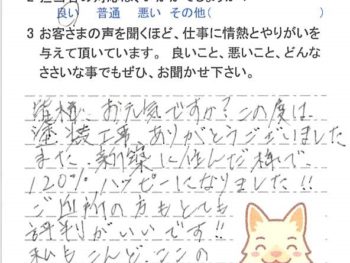 良い 普通 悪い その他(
3 お客さまの声を聞くほど、仕事に情熱とやりがいを
与えて頂いています。 良いこと、悪いこと、どんな
ささいな事でもぜひ、お聞かせ下さい。
皆様、お元気ですか？この度は
塗装工事、ありがとうございました
また、新築に住んだ様で、
120% ハッピーになりました!!
ご近所の方もとても
評判がいいです!!
私もこんど、ここの